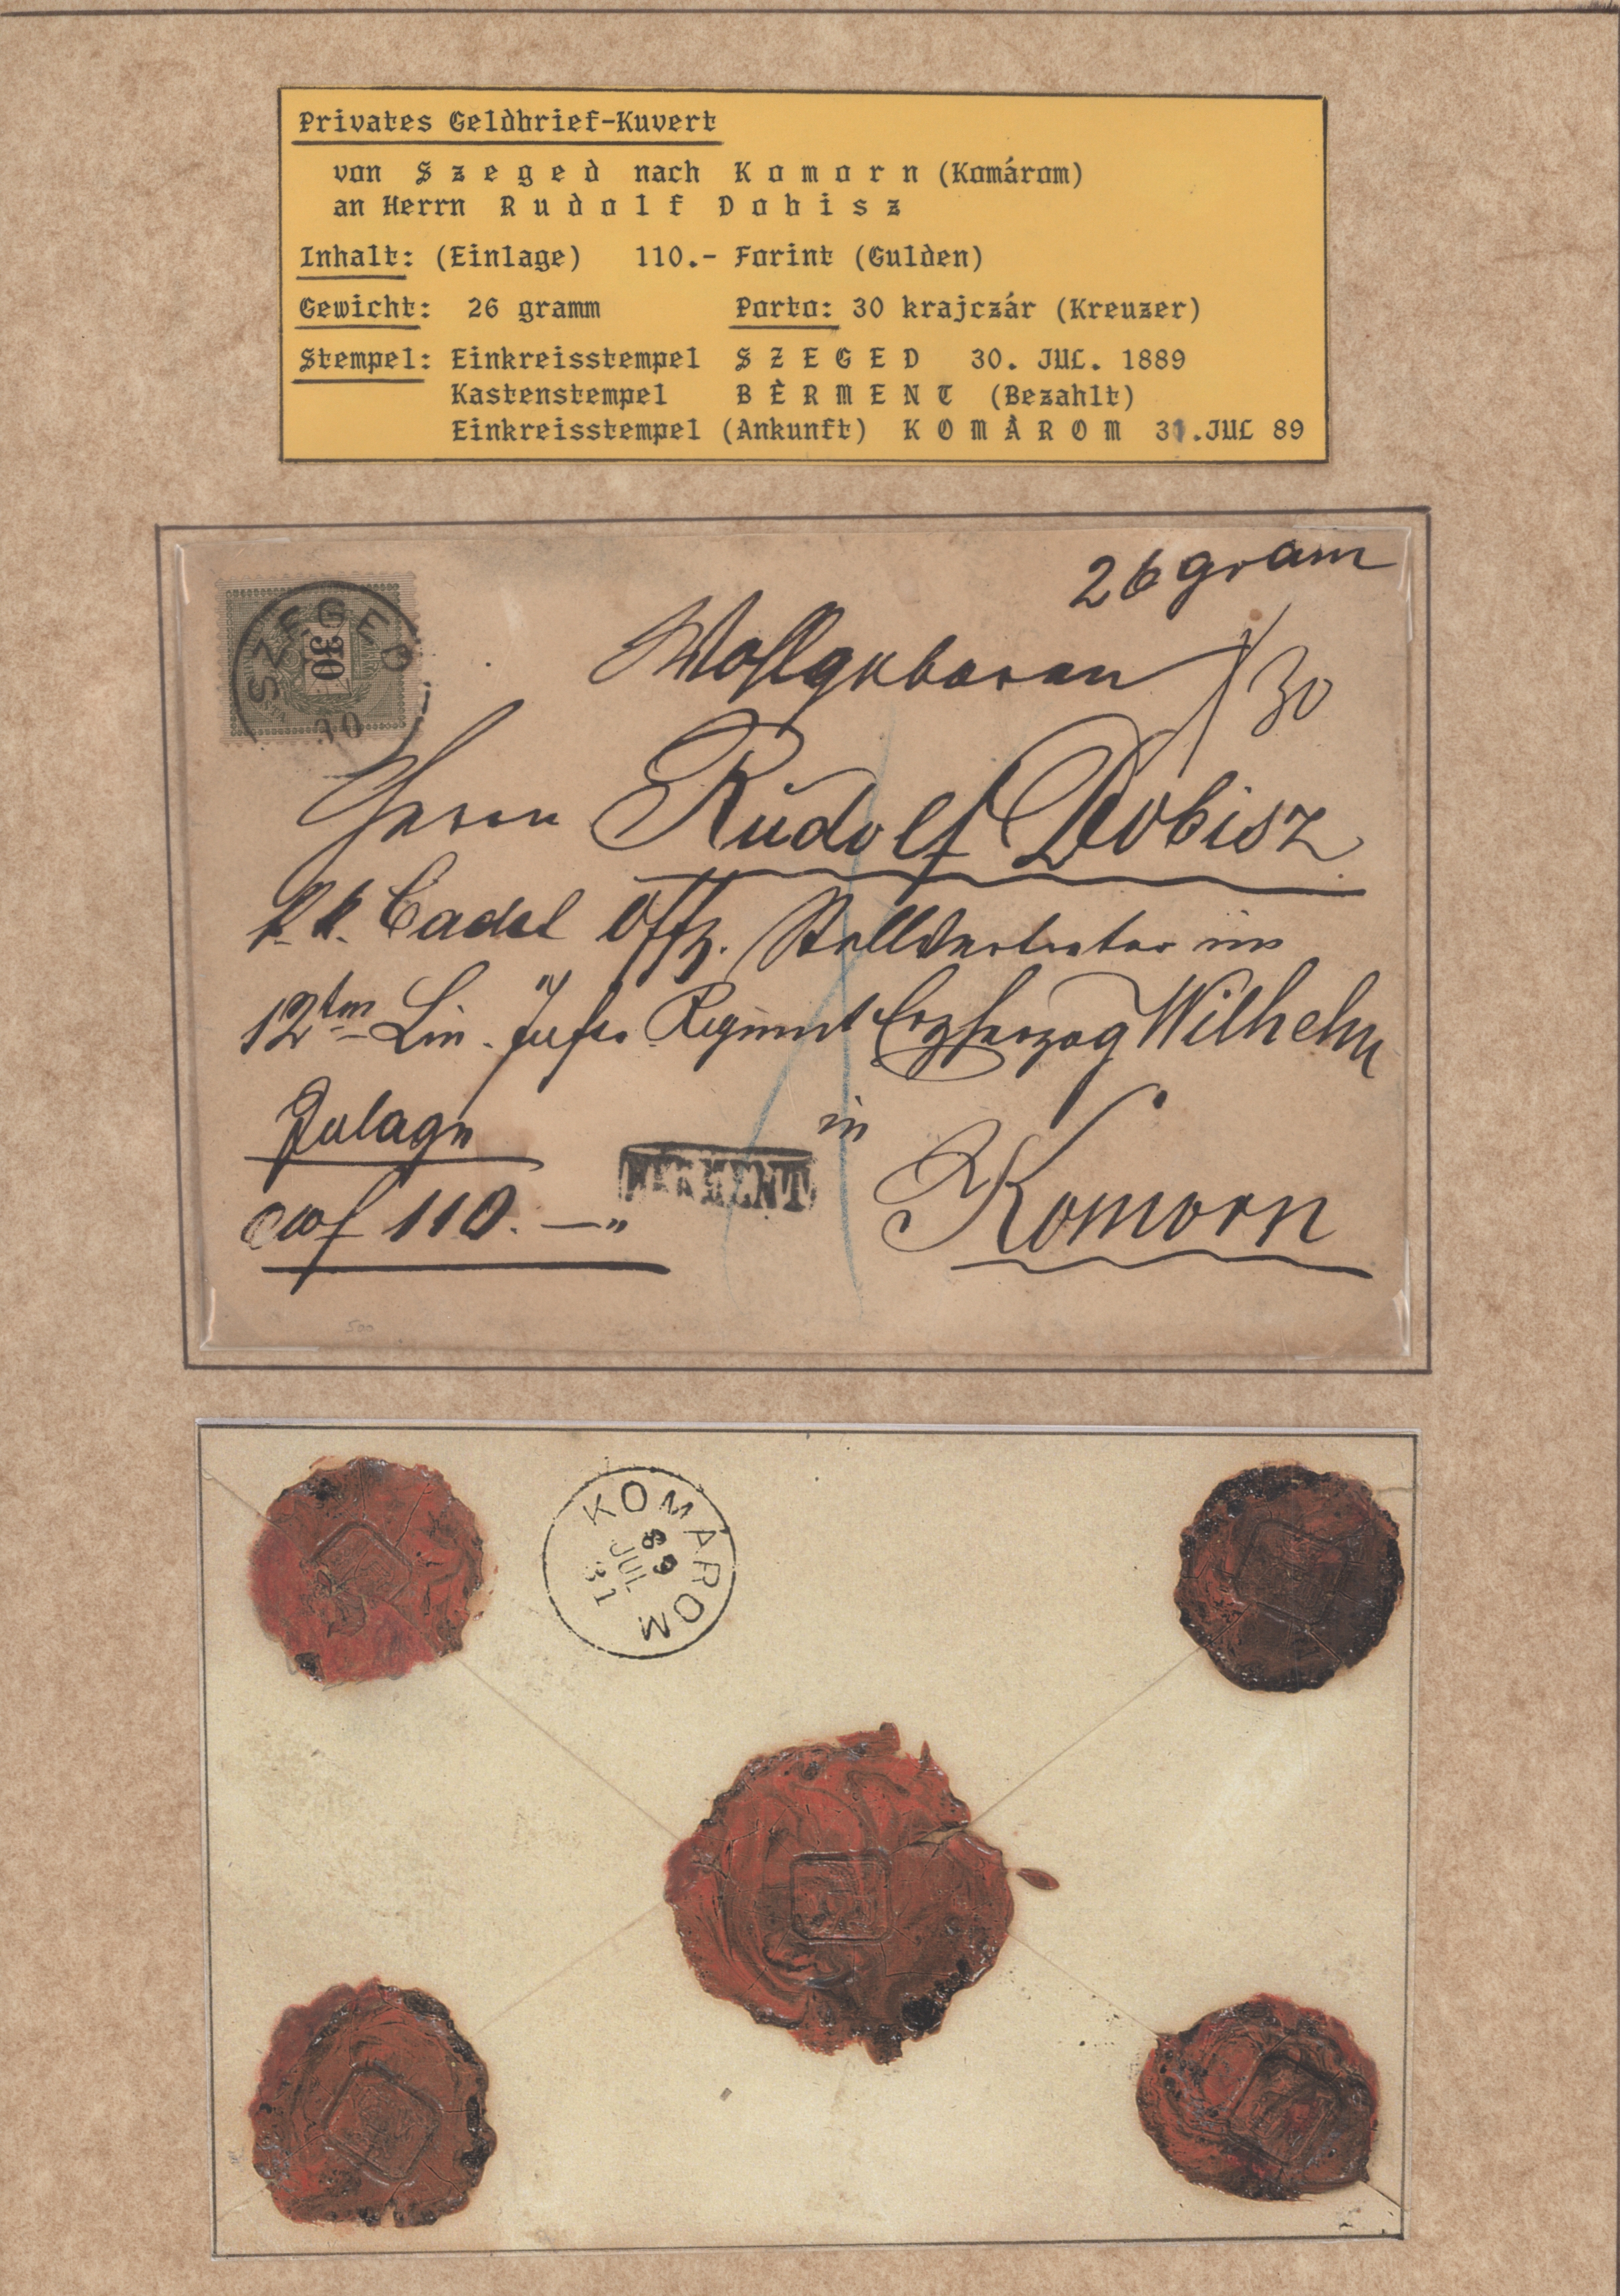 Privates Geldbrief-Kuvert
von Szeged nach Komorn (Komárom)
an Herrn Rudolf Dobisz
Inhalt: (Einlage) 110.- Forint (Gulden)
Gewicht: 26 gramm Porto: 30 krajczár (Kreuzer)
Stempel: Einkreisstempel SZEGED 30. JUL. 1889
Kastenstempel BÈRMENT (Bezahlt)
Einkreisstempel (Ankunft) KOMÀROM 31.JUL 89
26 gram
SZEGED
30
Wohlgeboren
30
Herrn Rudolf Dobisz
k. k. Cadet Offz. Stellvertreter im
12ten Lin. Inftr. Regiment Erzherzog Wilhelm
in
BÉRMENT
Komorn
110. —"
500
KOMÁROM
89
JUL
31